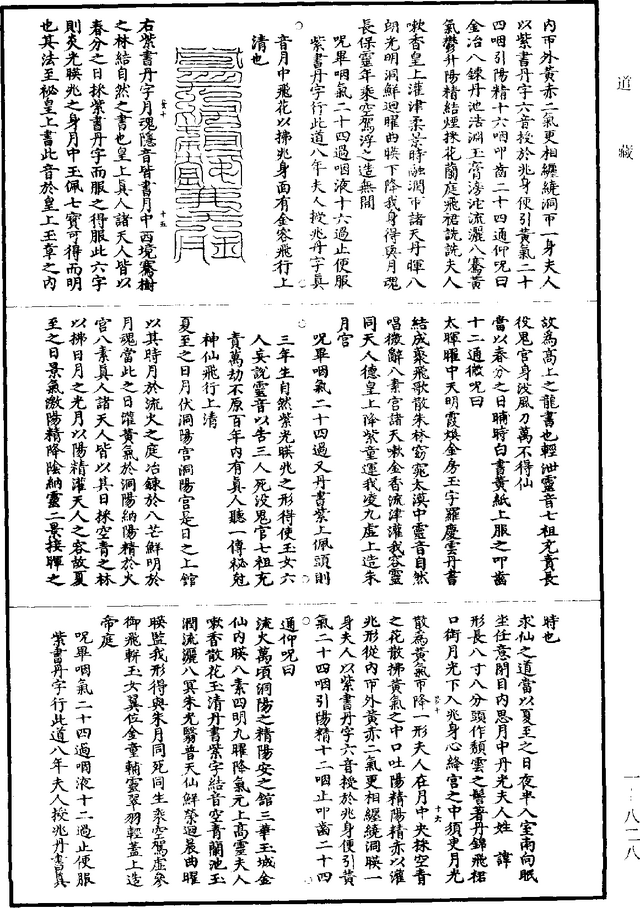 道藏
內帀外黃赤二氣更相纏繞洞帀一身夫人
以紫書丹字六音授於兆身便引黃氣二十
四咽引陽精十六咽叩齒二十四通仰呪曰
金冶八鍊丹池浩淵玉膏滂沱流灑八鶱黃
氣鬱升陽精結煙採花蘭庭飛裙詵詵夫人
嗽香皇上灌津柔蒙時融潤帀諸天丹暉八
朗光明洞鮮迴曜曲暎下降我身得與月魂
長保靈年乘空駕浮之造無間
呪畢咽氣二十四過咽液十六過止便服
紫書丹字行此道八年夫人授兆丹字真
音月中飛花以拂兆身面有金容飛行上
清也
右紫書丹字月魂隱音皆書月中西境鶱樹
之林結自然之書也皇上真人諸天人皆以
春分之日採紫書丹字而服之得服此六字
則炎光暎兆之身月中玉佩七寶可得而明
也其法至祕皇上書此音於皇上玉章之內
故為高上之龍書也輕泄靈音七祖充責長
役鬼官身沒風刀萬不得仙
當以春分之日晡時白書黃紙上服之叩齒
十二通微呪曰
太暉曜中天明霞煥金房玉字羅慶雲丹書
結成篆飛歌散朱林窈窕太漠中靈音自然
唱微辭八素宮諸天嗽金香流津灌我容靈
同天人德皇上降紫童運我凌九虛上造朱
月宮
呪畢咽氣二十四過又丹書紫上佩頭則
三年生自然紫光暎兆之形得使玉女六
人妄說靈音以告三人死沒鬼官七祖充
責萬劫不原百年內有真人聽一傳祕尅
神仙飛行上清
夏至之日月伏洞陽宮洞陽宮是日之上館
以其時月於流火之庭冶鍊於八芒鮮明於
月魂當此之日灌黃氣於洞陽納陽精於火
官八素真人諸天人皆以其日採空青之林
以拂日月之光月以陽精灌天人之容故夏
至之日景氣激陽精降陰納靈二景接暉之
時也
求仙之道當以夏至之日夜半入室南向眠
坐任意閉目內思月中丹光夫人姓 諱
形長八寸八分頭作頹雲之髻著丹錦飛裙
口銜月光下入兆身心絳宮之中須臾月光
散為黃氣帀降一形夫人在月中央採空青
之花散拂黃氣之中口吐陽精陽精赤以灌
兆形從內帀外黃赤二氣更相纏繞洞暎一
身夫人以紫書丹字六音授於兆身便引黃
氣二十四咽引陽精十二咽止叩齒二十四
通仰呪曰
流火萬頃洞陽之精陽安之館三華玉城金
仙內暎八素四明九曜降氣元上高靈夫人
嗽香散花玉清丹書紫字結音空青蘭池玉
澗流灑八冥朱光翳普天仙鮮榮迴晨曲曜
暎監我形得與朱月同死同生乘空駕虛參
御飛軿玉女翼位金童輔靈翠羽輕蓋上造
帝庭
呪畢咽氣二十四過咽液十二過止便服
紫書丹字行此道八年夫人授兆丹書真
一一八二八